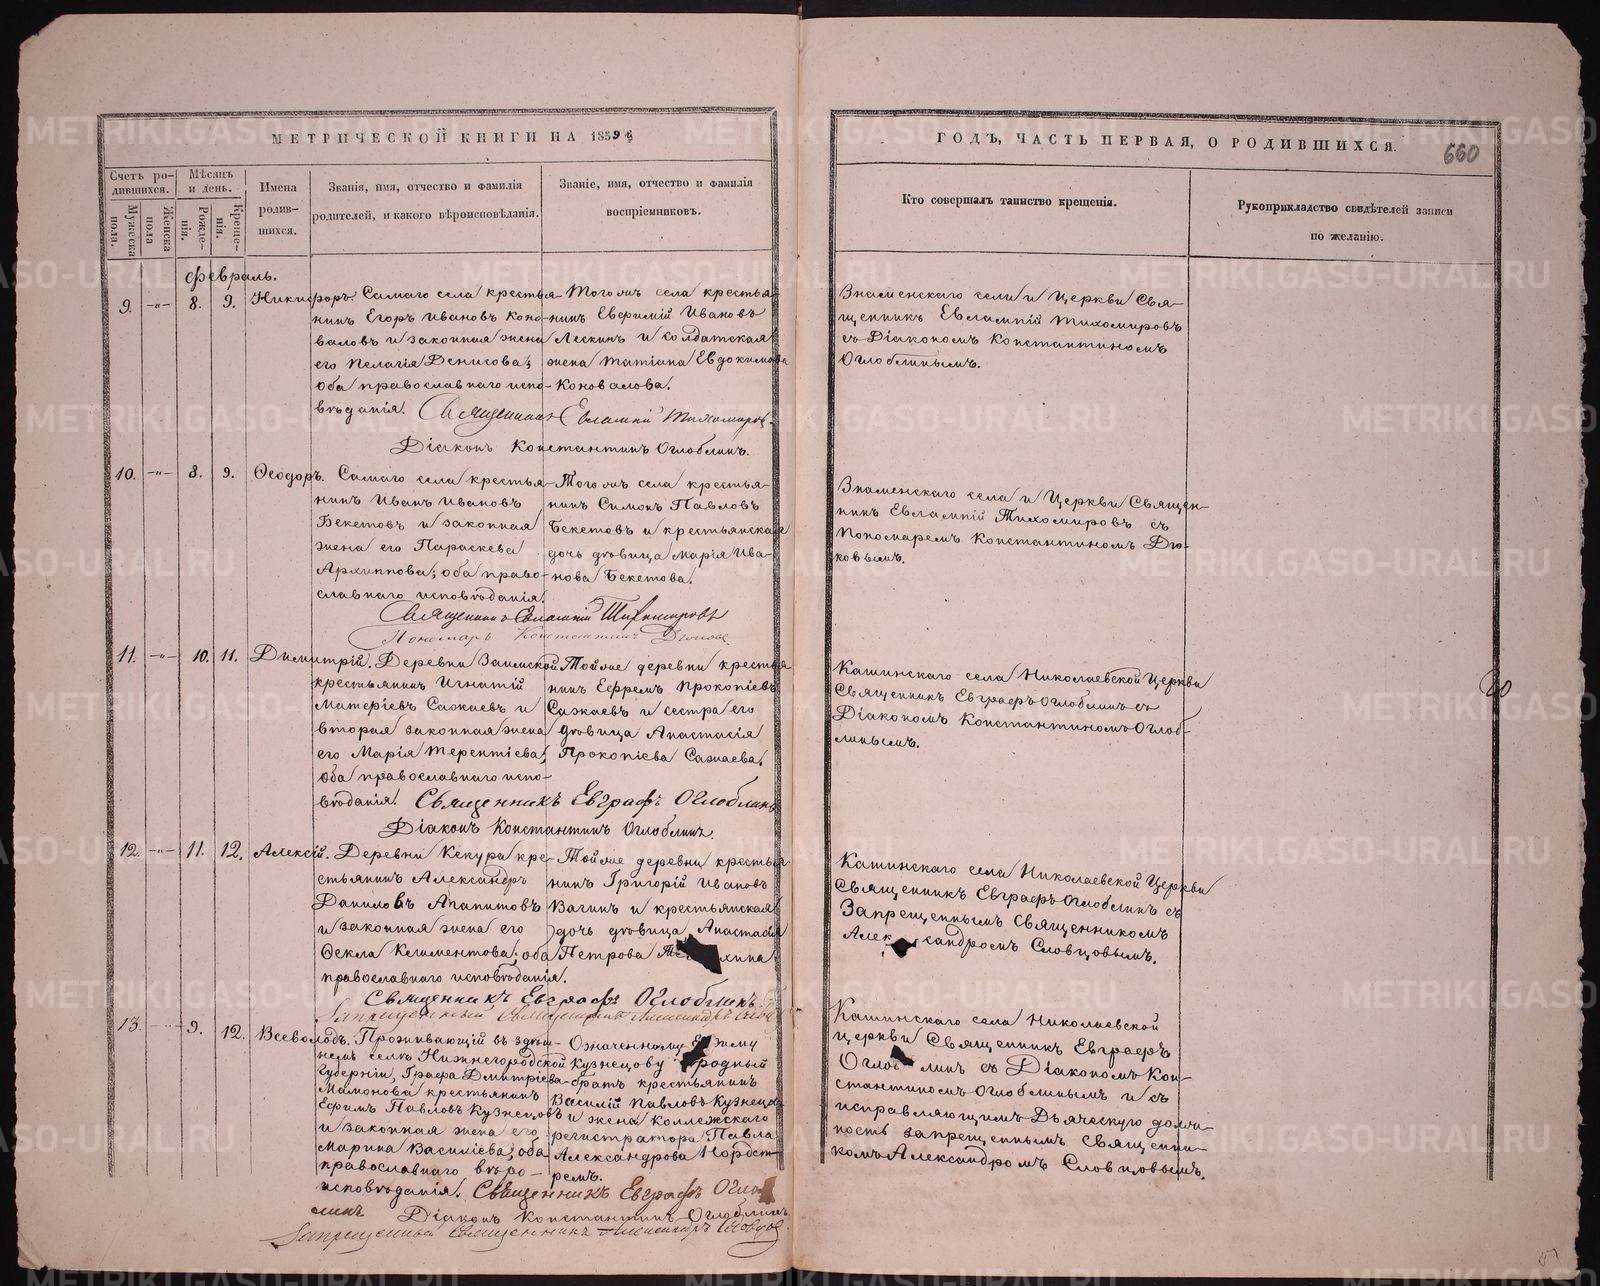 МЕТРИЧЕСКОЙ КНИГИ НА 1859
ГОДЪ, ЧАСТЬ ПЕРВАЯ, О РОДИВШИХСЯ.
660
Счетъ родившихся.
Мужеска пола.
Женска пола
Мѣсяцъ и день.
Рожденія.
Крещенія.
Имена родившихся.
Званія, имя, отчество и фамилія
родителей, и какого вѣроисповѣданія.
Званіе, имя, отчество и фамилія
воспріемниковъ.
Кто совершалъ таинство крещенія.
Рукоприкладство свидѣтелей записи
по желанію.
Февраль.
9. -„- 8. 9. Никифоръ.
Самаго села крестья-
нинъ Егоръ Ивановъ Коно-
валовъ и законная жена
его Пелагія Денисова;
оба православнаго испо-
вѣданія.
Того жъ села крестья-
нинъ Евфимій Ивановъ
Лескинъ и солдатская
жена Татіана Евдокимова
Коновалова.
Знаменскаго села и Церкви Свя-
щенникъ Евлампій Тихомировъ
съ Діакономъ Константиномъ
Оглоблинымъ.
Священникъ Евлампій Тихомировъ.
Діаконъ Константинъ Оглоблинъ.
10. -„- 8. 9. Ѳеодоръ.
Самаго села крестья-
нинъ Иванъ Ивановъ
Бекетовъ и законная
жена его Параскева
Архиппова; оба право-
славнаго исповѣданія.
Того жъ села крестья-
нинъ Симонъ Павловъ
Бекетовъ и крестьянская
дочь дѣвица Марія Ива-
нова Бекетова.
Знаменскаго села и Церкви Священ-
никъ Евлампій Тихомировъ съ
Пономаремъ Константиномъ Дю-
ковымъ.
Священникъ Евлампій Тихомировъ
Пономарь Константинъ Дюковъ
11. -„- 10. 11. Димитрій.
Деревни Заимской
крестьянинъ Игнатій
Матѳріевъ Сажаевъ и
вторая законная жена
его Марія Терентіева;
оба православнаго испо-
вѣданія.
Той же деревни крестья
нинъ Ефремъ Прокопіевъ
Сажаевъ и сестра его
дѣвица Анастасія
Прокопіева Сажаева.
Кашинскаго села Николаевской Церкви
Священникъ Евграфъ Оглоблинъ съ
Діакономъ Константиномъ Оглоб-
линымъ.
Священникъ Евграфъ Оглоблинъ
Діаконъ Константинъ Оглоблинъ.
12. -„- 11. 12. Алексій.
Деревни Кекура кре-
стьянинъ Александръ
Даниловъ Агапитовъ
и законная жена его
Ѳекла Климентова; оба
православнаго исповѣданія.
Той же деревни крестья
нинъ Григорій Ивановъ
Вагинъ и крестьянская
дочь дѣвица Анастасія
Петрова
Кашинскаго села Николаевской Церкви
Священникъ Евграфъ Оглоблинъ съ
Запрещеннымъ Священникомъ
Александромъ Словцовымъ.
Священникъ Евграфъ Оглоблинъ.
Запрещенный Священникъ Александръ
13. 9. 12. Всеволодъ.
Проживающій въ здѣш-
немъ селѣ Нижнегородской
Губерніи, Графа Дмитріева-
Мамонова крестьянинъ
Ефимъ Павловъ Кузнецовъ
и законная жена его
Марина Василіева; оба
православнаго вѣро-
исповѣданія.
Означенному Ефиму
Кузнецову родный
братъ крестьянинъ
Василій Павловъ Кузнецовъ
и жена Коллежскаго
регистратора Павла
Александрова
Кашинскаго села Николаевской
церкви Священникъ Евграфъ
Оглоблинъ съ Діакономъ Кон-
стантиномъ Оглоблинымъ и съ
исправляющимъ Дьяческую долж-
ность запрещеннымъ Священни-
комъ Александромъ Словцовымъ.
Священникъ Евграфъ Огло
линъ Діаконъ Константинъ Оглоблинъ.
Запрещенный Священникъ Александръ Словцовъ
METRIKI.GASO-URAL.RU